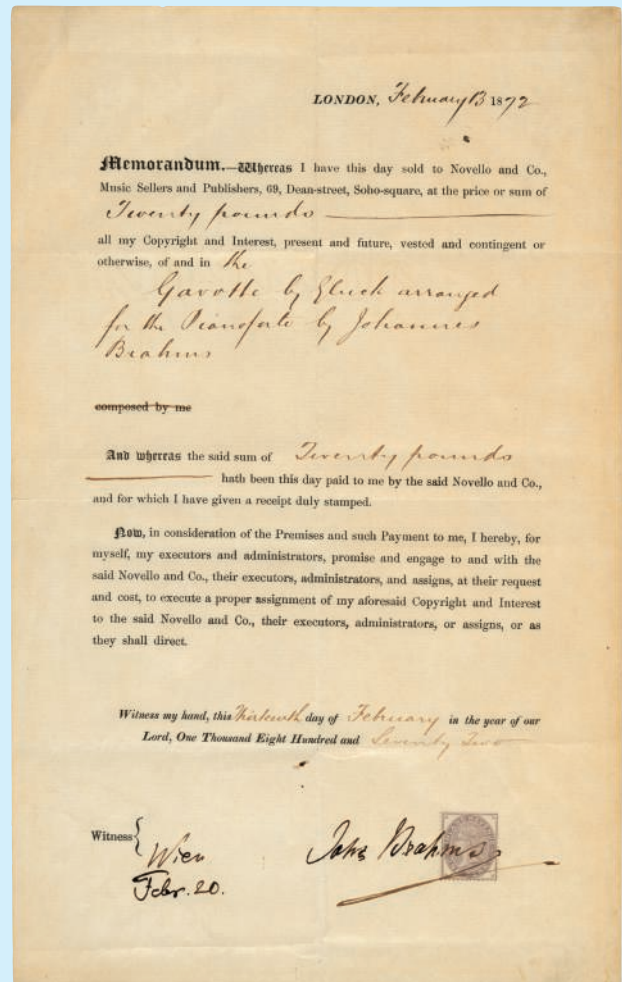 LONDON, February 13 1872
Memorandum.—Whereas I have this day sold to Novello and Co.,
Music Sellers and Publishers, 69, Dean-street, Soho-square, at the price or sum of
Twenty pounds
all my Copyright and Interest, present and future, vested and contingent or
otherwise, of and in the
Gavotte by Gluck arranged
for the Pianoforte by Johannes
Brahms
composed by me
And whereas the said sum of Twenty pounds
hath been this day paid to me by the said Novello and Co.,
and for which I have given a receipt duly stamped.
Now, in consideration of the Premises and such Payment to me, I hereby, for
myself, my executors and administrators, promise and engage to and with the
said Novello and Co., their executors, administrators, and assigns, at their request
and cost, to execute a proper assignment of my aforesaid Copyright and Interest
to the said Novello and Co., their executors, administrators, or assigns, or as
they shall direct.
Witness my hand, this Thirteenth day of February in the year of our
Lord, One Thousand Eight Hundred and Seventy Two
Witness
Wien Johs Brahms
Febr. 20.